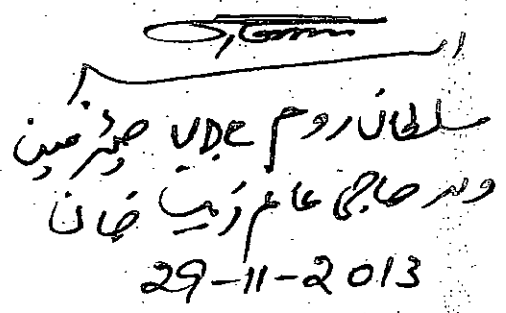 سلطان روم UDC
ولد حاجی عالم زیب خان
29-11-2013